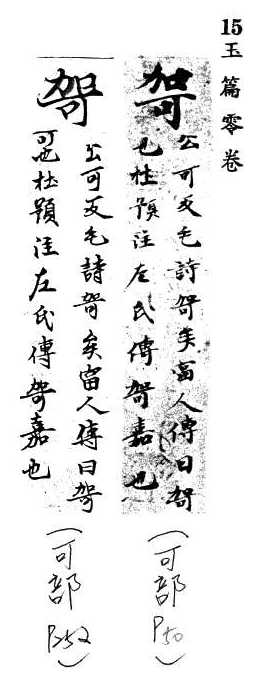 15 玉篇零卷
哿
公可反毛詩哿矣富人傳曰哿
也杜預注左氏傳哿嘉也
(可部 P50)
哿
公可反毛詩哿矣富人傳曰哿
可也杜預注左氏傳哿嘉也
(可部)